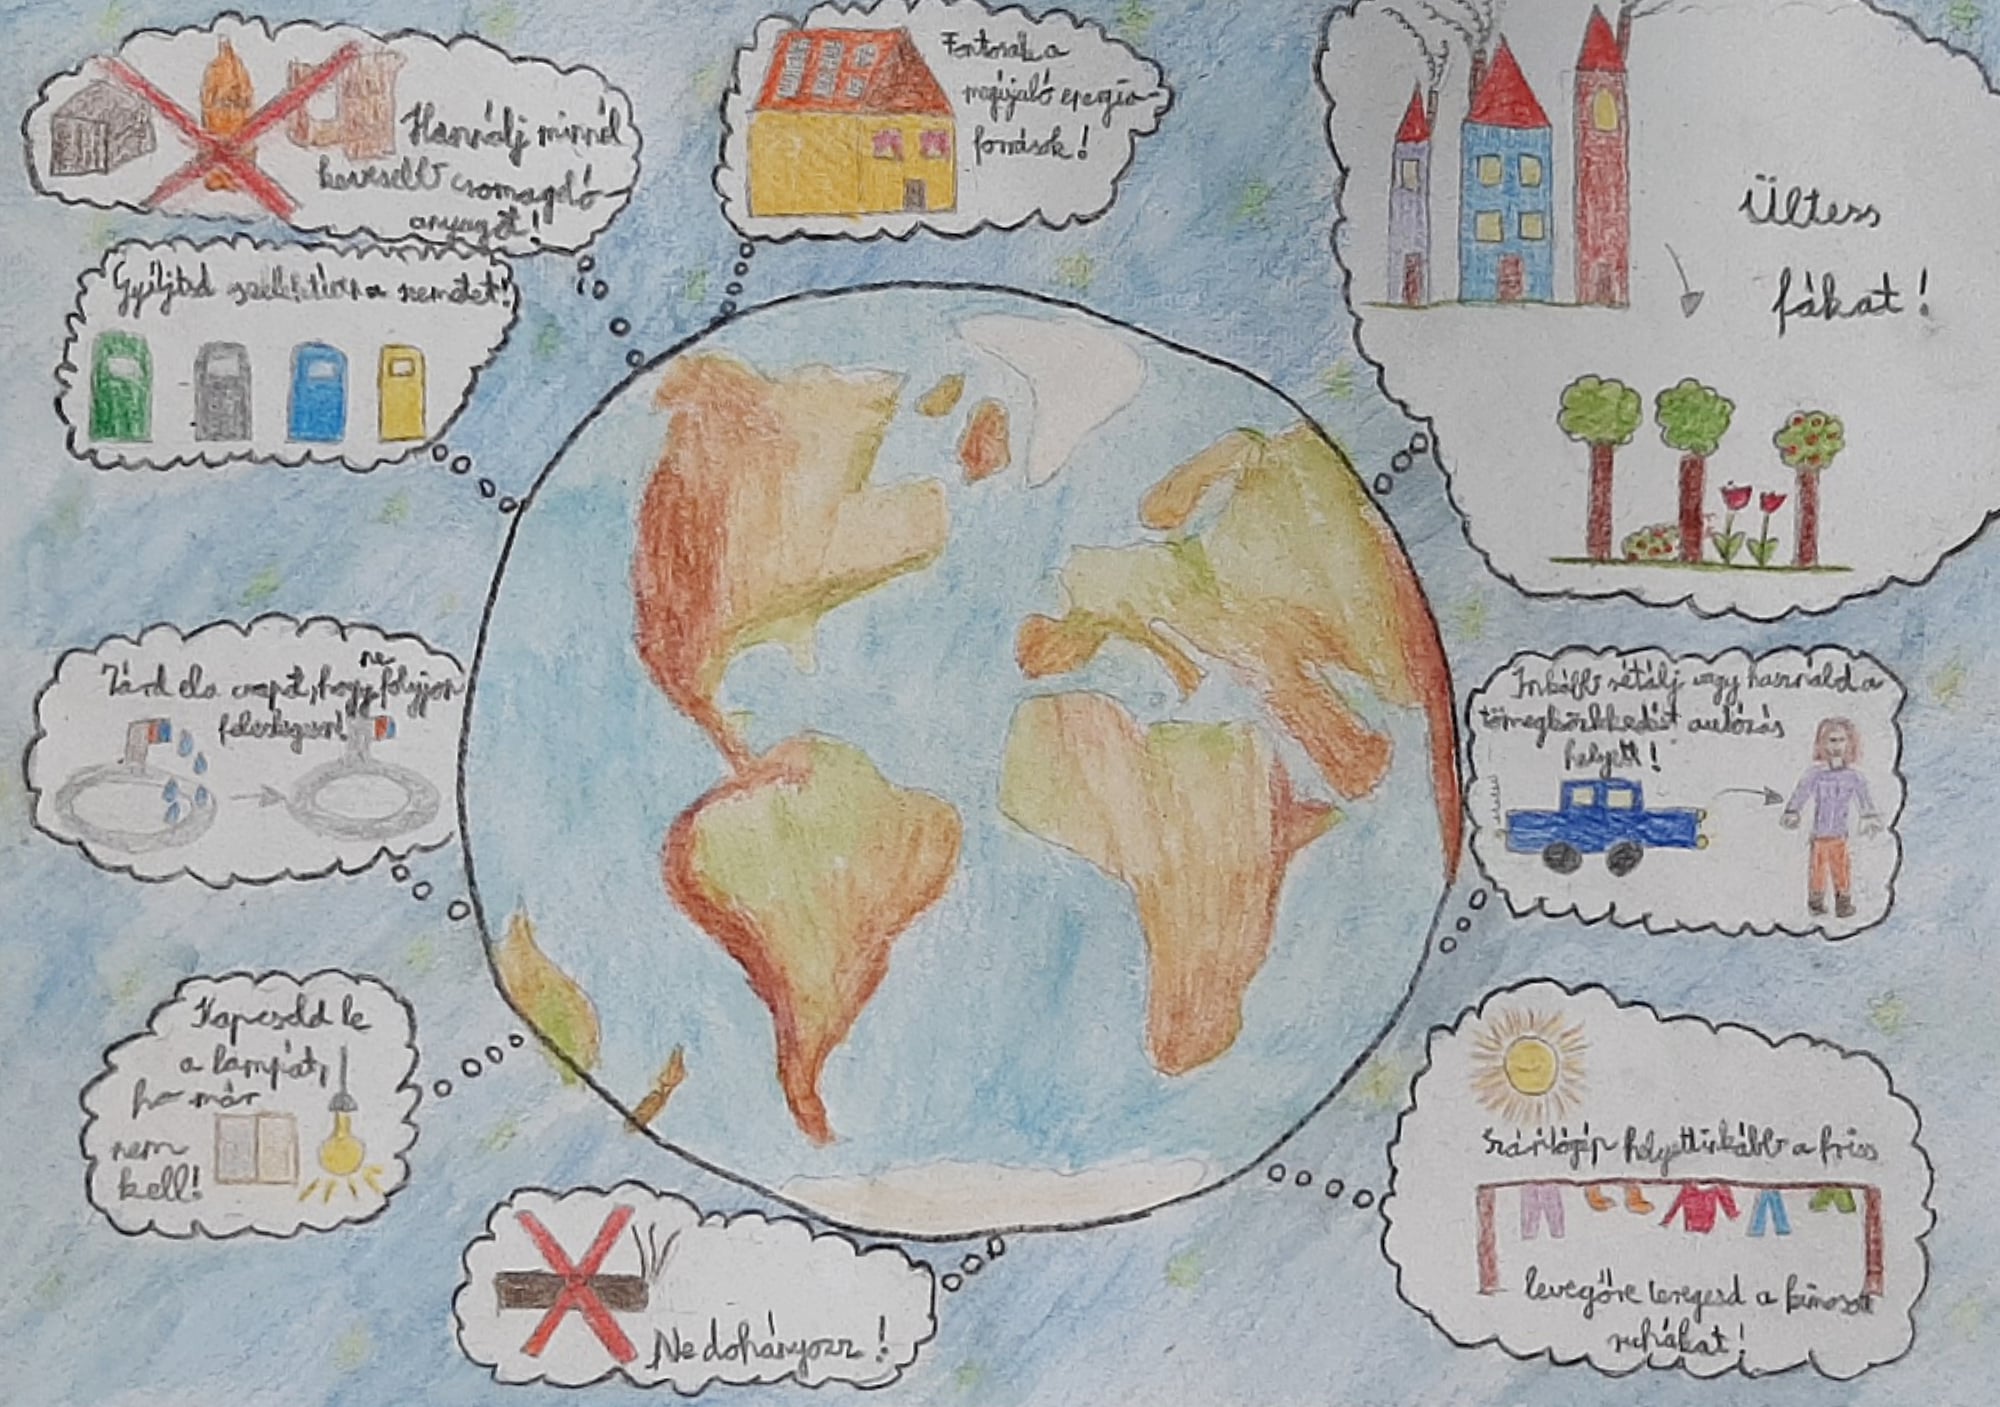 Használj minnél
kevesebb csomagoló
anyagot!
Fontosak a
megújuló energia-
források!
Ültess
fákat!
Gyűjtsd szelektívan a szemetet!
Zárd el a csapot, hogy ne folyjon
feleslegesen!
Inkább sétálj vagy használd a
tömegközlekedést autózás
helyett!
Kapcsold le
a lámpát,
ha már
nem
kell!
Szárítógép helyett inkább a friss
levegőre teregesd a kimosott
ruhákat!
Ne dohányozz!